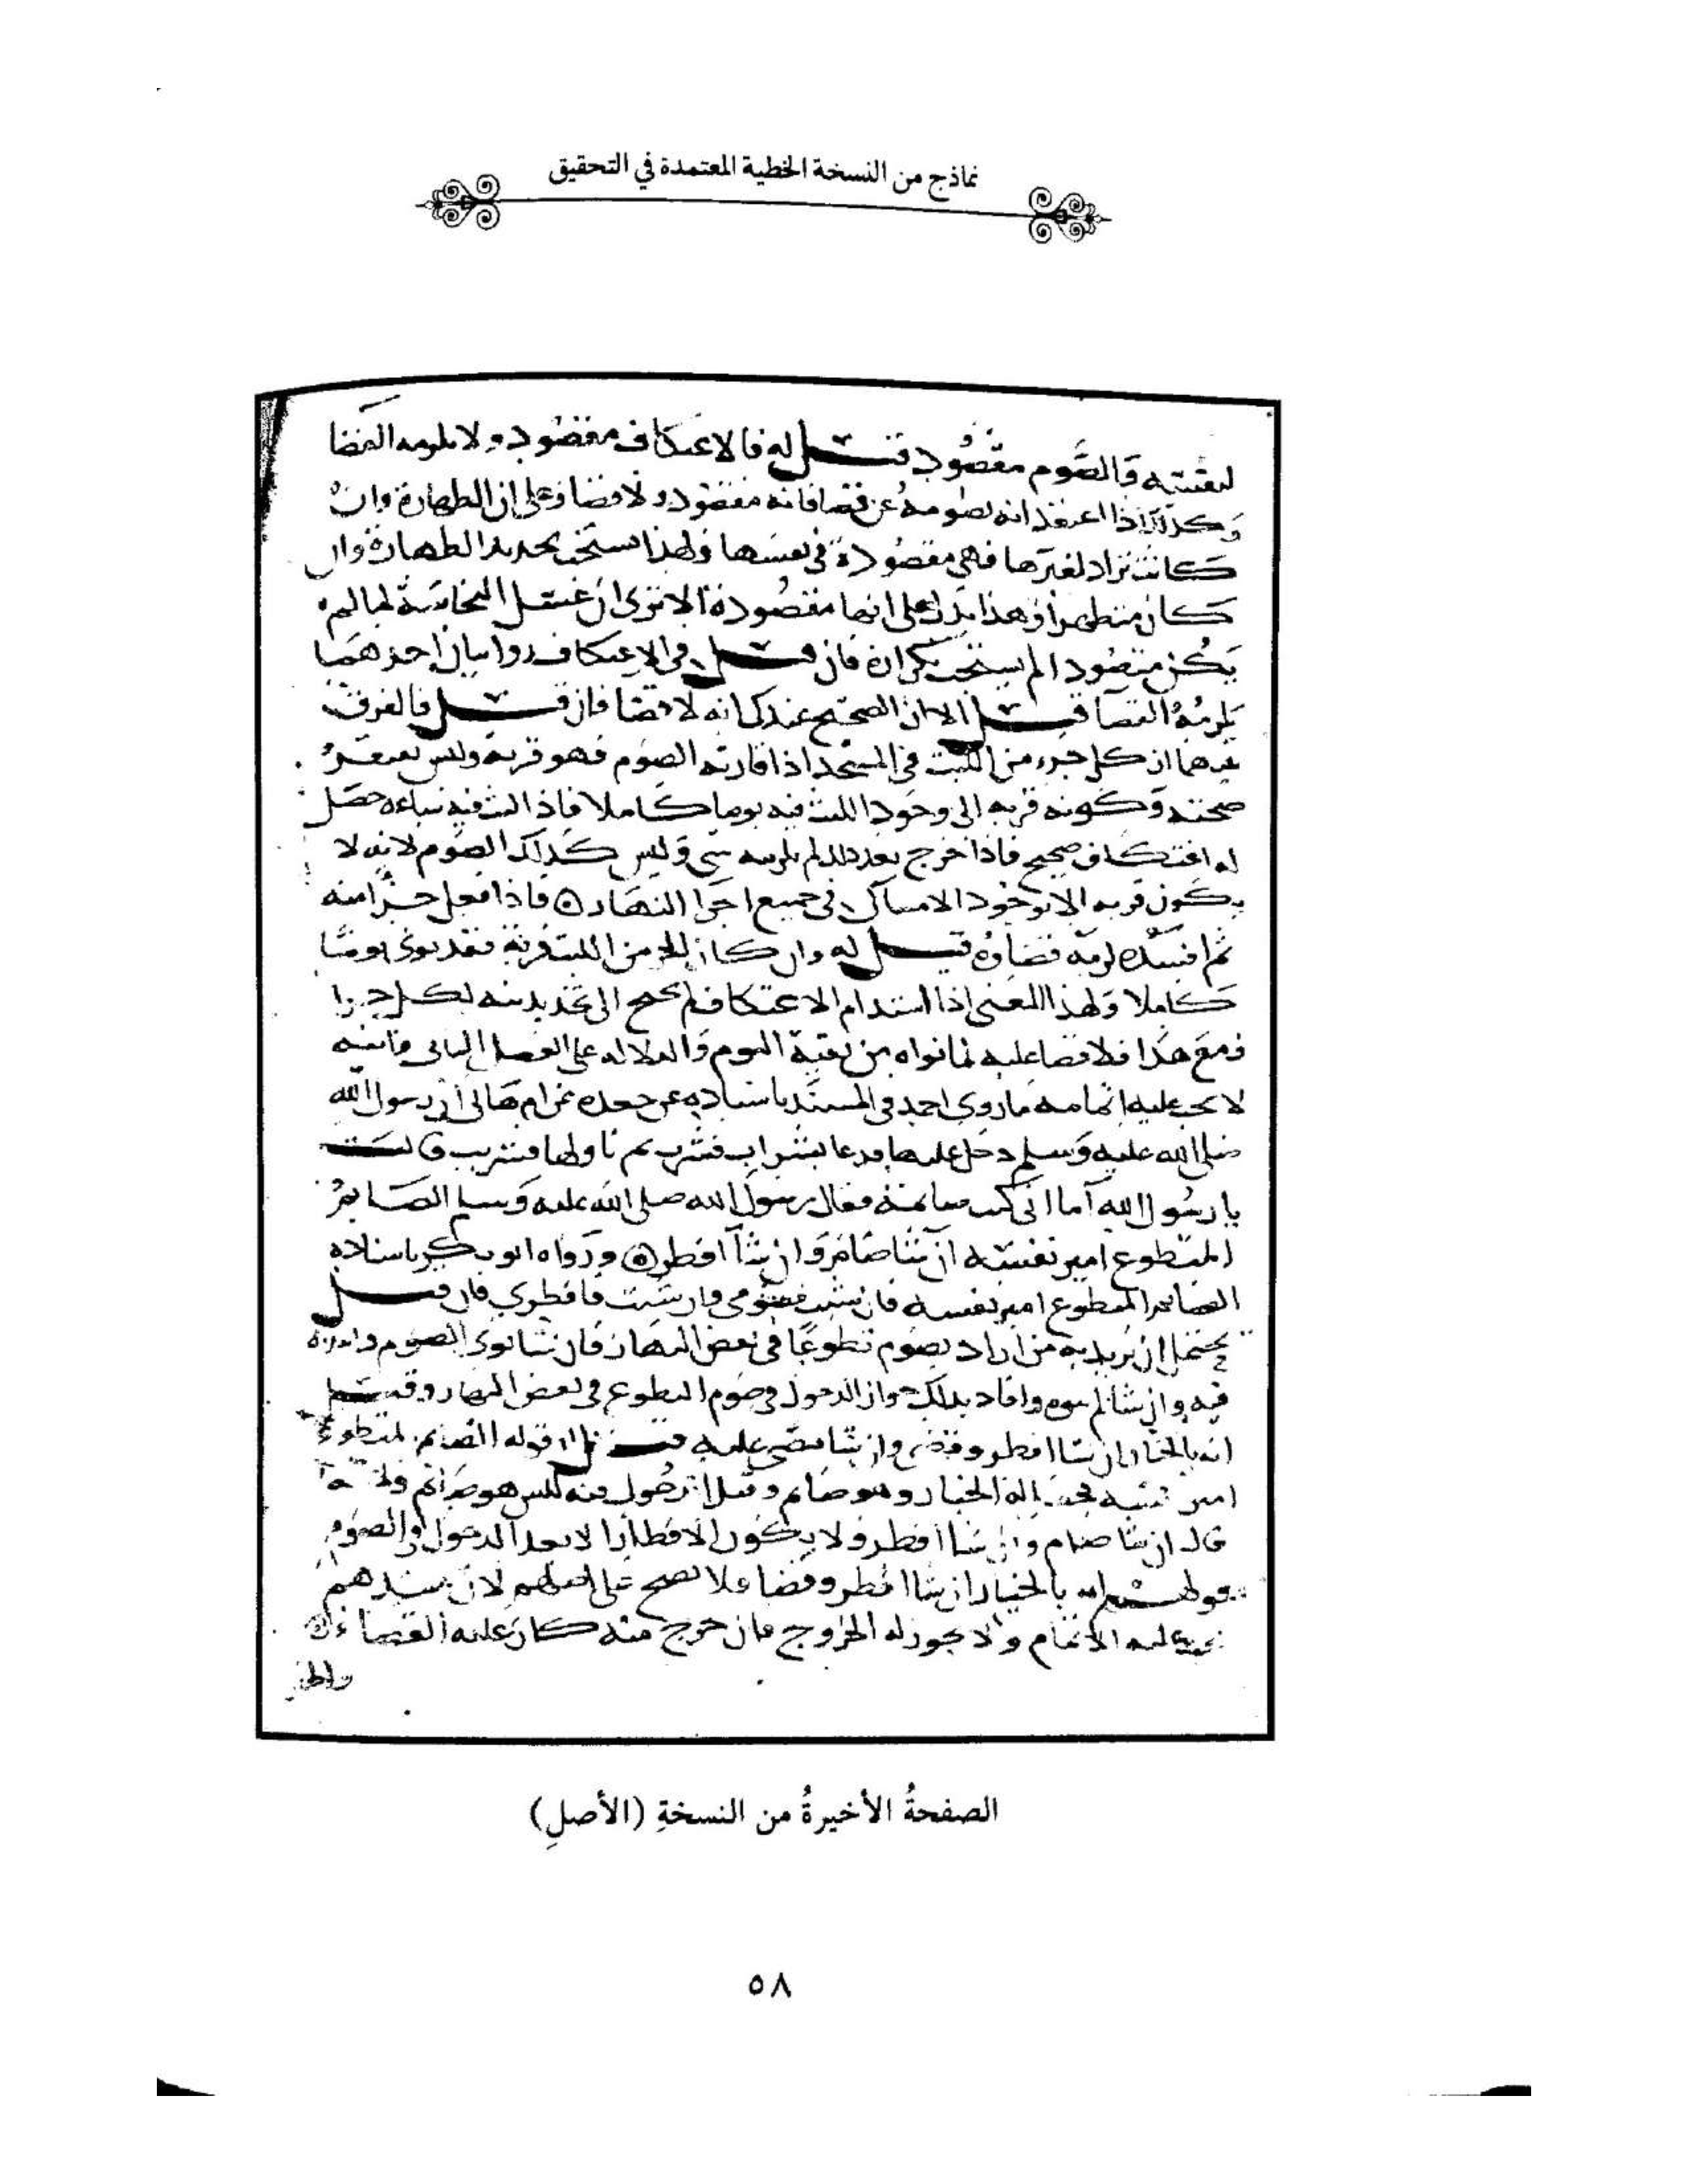 نماذج من النسخة الخطية المعتمدة في التحقيق
لنفسه والصوم مقصود قيل له فالاعتكاف مقصود ولا يلزمه القضا
وكذلك اذا اعتقد انه يصومه عن قضا فانه مقصود ولا قضا وعلى ان الطهارة وان
كانت تراد لغيرها فهي مقصودة في نفسها ولهذا يستحب تجديد الطهارة وان
كان متطهرا وهذا يدل على انها مقصودة الا ترى ان غسل النجاسة لما لم
يكن مقصودا لم يستحب تكراره فان قيل في الاعتكاف روايتان احدهما
يلزمه القضا قيل الا ان الصحيح عندك انه لا قضا فان قيل فالفرق
بينهما ان كل جزء من اللبث في المسجد اذا قارنه الصوم فهو قربة وليس يفتقر
صحته وكونه قربه الى وجود اللبث فيه يوما كاملا فاذا لبث فيه ساعه حصل
له اعتكاف صحيح فاذا خرج بعد ذلك لم يلزمه شي وليس كذلك الصوم لانه لا
يكون قربه الا بوجود الامساك في جميع اجزا النهار فاذا فعل جزا منه
ثم افسده لزمه قضاؤه قيل له وان كان الجز من اللبث قربة فقد نوى يوما
كاملا ولهذا المعنى اذا استدام الاعتكاف لم يحتج الى تجديد نيه لكل جزا
ومع هذا فلا قضا عليه لما نواه من بقية اليوم والدلاله على الفصل الثاني وانه
لا يجب عليه اتمامه ما روى احمد في المسند باسناده عن جعده عن ام هاني ان رسول الله
صلى الله عليه وسلم دخل عليها فدعا بشراب فشرب ثم ناولها فشربت وقالت
يا رسول الله اما اني كنت صائمة فقال رسول الله صلى الله عليه وسلم الصائم
المتطوع امير نفسه ان شا صام وان شا افطر ورواه ابو بكر باسناده
الصائم المتطوع امير نفسه فان شيت فصومي وان شيت فافطري فان قيل
يحتمل ان يريد به من اراد يصوم تطوعا في بعض النهار فان شا نوى الصوم
فيه وان شا لم ينوه وافاد بذلك جواز الدخول في صوم التطوع في بعض النهار وقيل
انه بالخيار ان شا افطر وقضى وان شا مضى عليه قيل قوله الصائم المتطوع
امير نفسه الخيار وهو صائم وقبل الدخول فيه ليس هو صائم
قال ان شا صام وان شا افطر ولا يكون الافطار الا بعد الدخول في الصوم
وقولهم انه بالخيار ان شا افطر وقضا فلا يصح على اصلهم لان عندهم
يجب عليه الاتمام ولا يجوز له الخروج فان خرج منه كان عليه القضاء
الصفحةُ الأخيرةُ من النسخةِ (الأصلِ)
٥٨